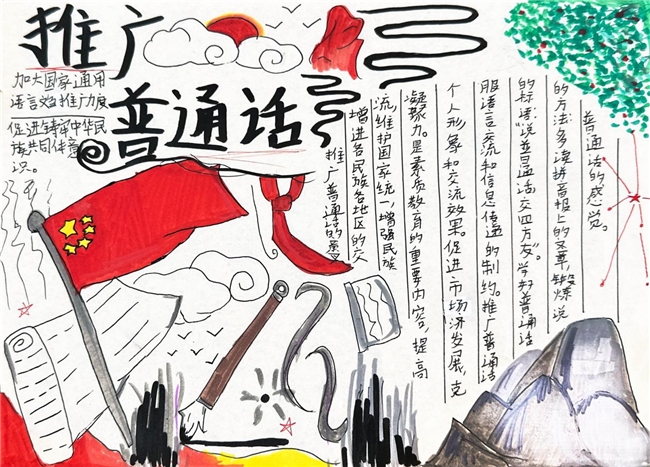 推广
普通话
加大国家通用
语言文字推广力度
促进铸牢中华民
族共同体意
识。
推广普通话的意义
增进各民族各地区的交
流,维护国家统一,增强民族
凝聚力。是素质教育的重要内容。提高
个人形象和交流效果。促进市场济发展,克
服语言交流和信息传递的制约。推广普通话
的标志"说普通话,交四方友"。学好普通话
的方法:多读拼音报上的文章,锻炼说
普通话的感觉。